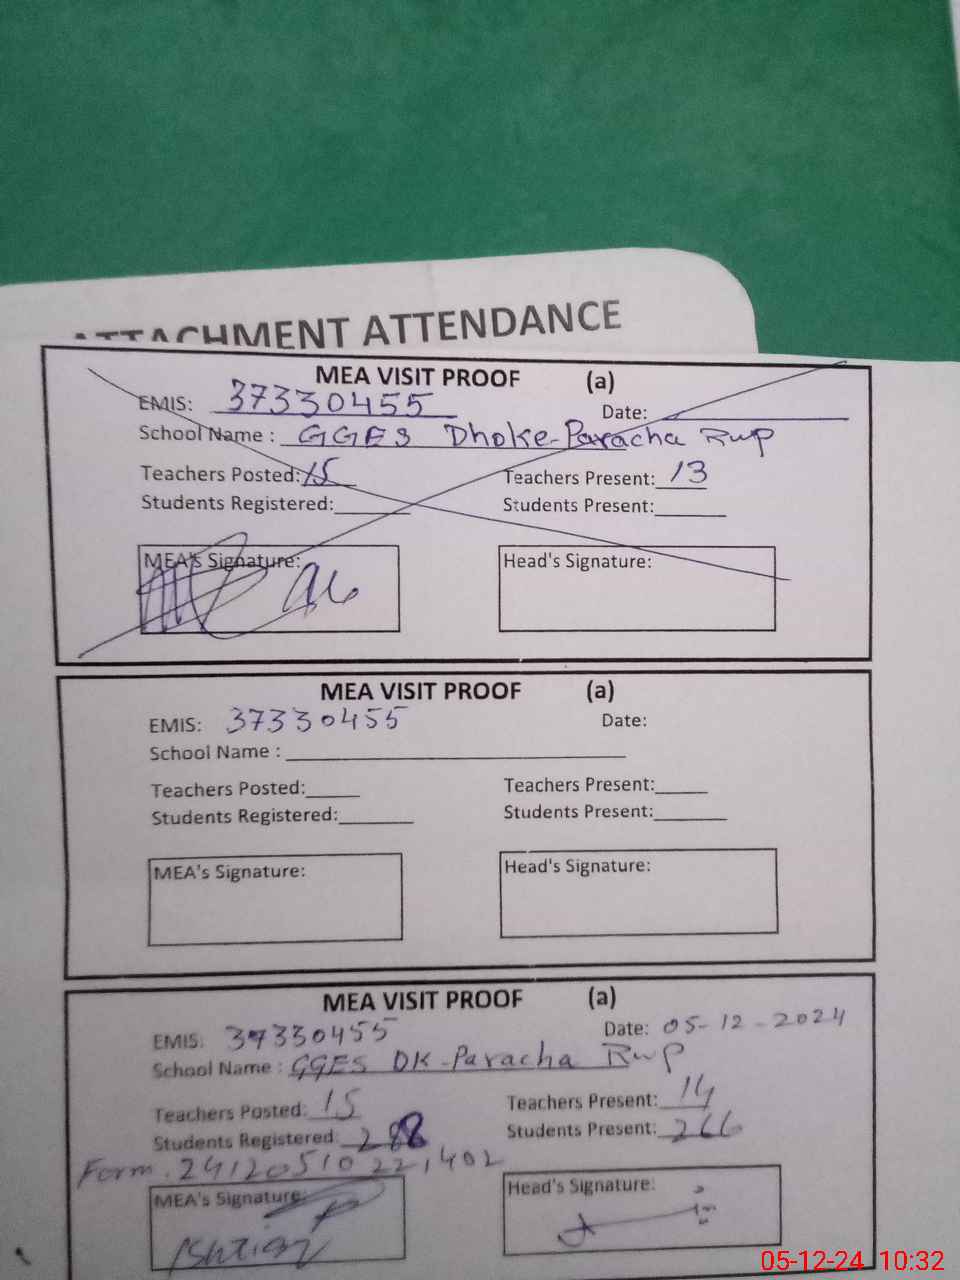 ATTACHMENT ATTENDANCE
MEA VISIT PROOF (a)
EMIS: 37330455 Date:
School Name : GGES Dhoke-Paracha Rwp
Teachers Posted: 15 Teachers Present: 13
Students Registered: Students Present:
MEA's Signature: Head's Signature:
MEA VISIT PROOF (a)
EMIS: 37330455 Date:
School Name :
Teachers Posted: Teachers Present:
Students Registered: Students Present:
MEA's Signature: Head's Signature:
MEA VISIT PROOF (a)
EMIS: 37330455 Date: 05-12-2024
School Name : GGES DK-Paracha Rwp
Teachers Posted: 15 Teachers Present: 14
Students Registered: 288 Students Present: 266
Form. 24120510221402
MEA's Signature: Head's Signature:
Ishtiaq
05-12-24 10:32